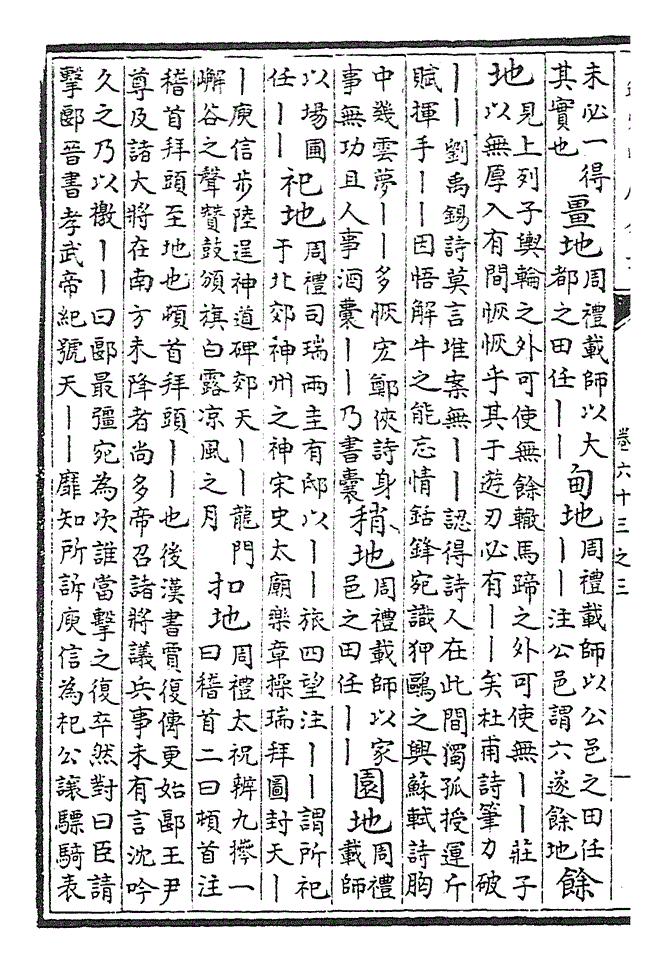 未必一得其實也 畺地 周禮載師以大都之田任丨丨 甸地 周禮載師以公邑之田任丨丨注公邑謂六遂餘地 餘
地 見上列子輿輪之外可使無餘轍馬蹄之外可使無丨丨莊子以無厚入有間恢恢乎其于遊刃必有丨丨矣杜甫詩筆力破
丨丨劉禹錫詩莫言堆案無丨丨認得詩人在此間獨孤授運斤賦揮手丨丨因悟解牛之能忘情銛鋒宛識狎鷗之興蘇軾詩胸
中幾雲夢丨丨多恢宏鄭俠詩身事無功且人事酒囊丨丨乃書囊 稍地 周禮載師以家邑之田任丨丨 園地 周禮載師
以場圃任丨丨 祀地 周禮司瑞兩圭有邸以丨丨旅四望注丨丨謂所祀于北郊神州之神宋史太廟樂章操瑞拜圖封天丨
丨庾信步陸逞神道碑郊天丨丨龍門嶰谷之聲贊鼓頒旗白露凉風之月 扣地 周禮太祝辨九𢷎一曰稽首二曰頓首注
稽首拜頭至地也頓首拜頭丨丨也後漢書賈復傳更始郾王尹尊及諸大將在南方未降者尚多帝召諸將議兵事未有言沈吟
久之乃以檄丨丨曰郾最彊宛為次誰當擊之復卒然對曰臣請擊郾晉書孝武帝紀號天丨丨靡知所訴庾信為杞公讓驃騎表
卷六十三之三
一